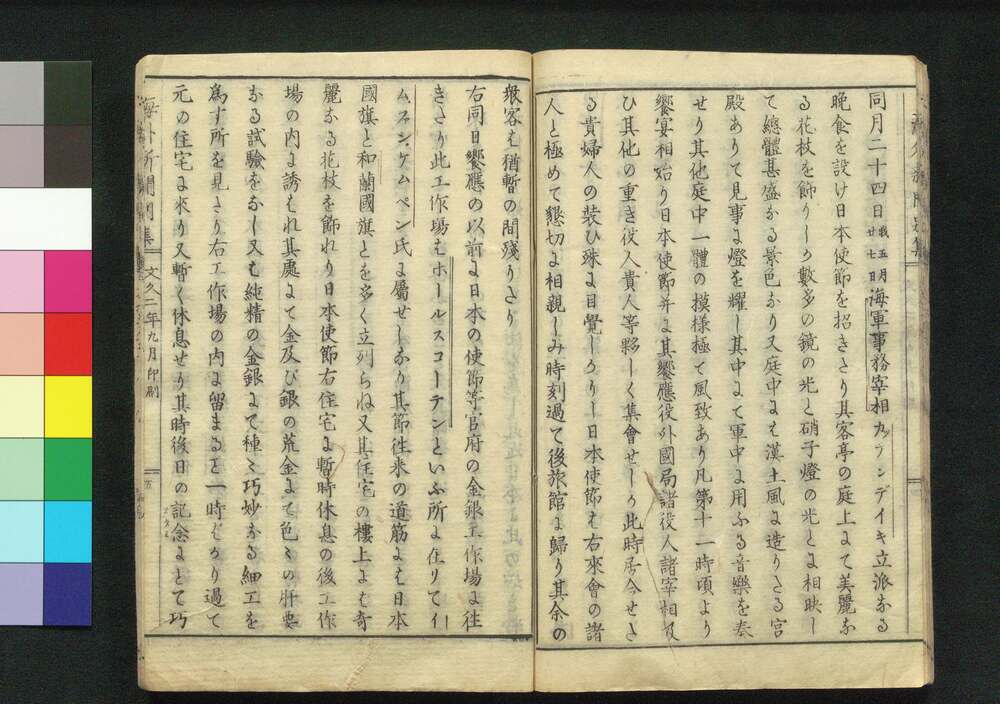 同月二十四日我五月廿七日海軍事務宰相カツテンデイキ立派なる
晩食を設け日本使節を招きたり其客亭の庭上にて美麗な
る花枝を飾りしか數多の鏡の光と硝子燈の光とに相映し
て總體甚盛なる景色なり又庭中には漢土風に造りたる宮
殿ありて見事に燈を耀し其中にて軍中に用ふる音樂を奏
せり其他庭中一體の摸樣極て風致あり凡第十一時頃より
饗宴相始り日本使節并に其饗應役外國局諸役人諸宰相及
ひ其他の重き役人貴人等夥しく集會せしか此時居合せた
る貴婦人の裝ひ殊に目覺しかりし日本使節は右來會の諸
人と極めて懇切に相親しみ時刻過て後旅館に歸り其余の
衆客は猶暫の間殘りたり
右同日饗應の以前に日本の使節等官府の金銀工作場に往
きたり此工作場はホールスコーテンといふ所に在りてイ
ム、スン、ケムペン氏に屬せしなり其節往來の道筋には日本
國旗と和蘭國旗とを多く立列らね又其住宅の樓上には奇
麗なる花枝を飾れり日本使節右住宅に暫時休息の後工作
場の内に誘はれ其處にて金及ひ銀の荒金にて色々の肝要
なる試驗をなし又も純精の金銀にて種々巧妙なる細工を
爲す所を見たり右工作場の内に留まると一時はかり過て
元の住宅に來り又暫く休息せり其時後日の記念にとて巧
海外新聞別集
文久二年九月印刷
五